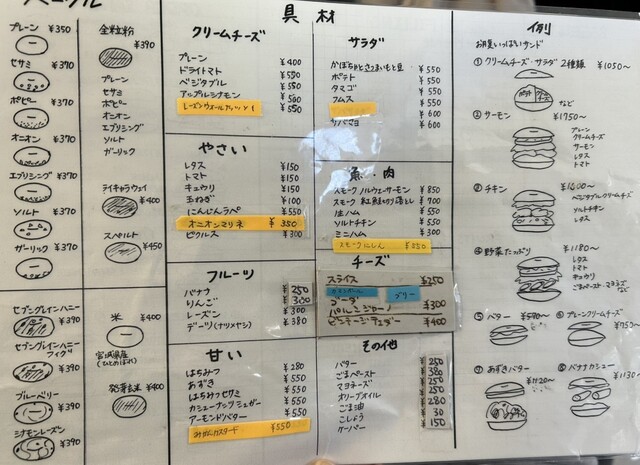 ベーグル
プレーン ¥350
セサミ ¥370
ポピー ¥370
オニオン ¥370
エブリシング ¥370
ソルト ¥370
ガーリック ¥370
セブングレインハニー ¥390
セブングレインハニーフィグ ¥390
ブルーベリー ¥390
シナモンレーズン ¥390
全粒粉 ¥390
プレーン
セサミ
ポピー
オニオン
エブリシング
ソルト
ガーリック
ライキャラウェイ ¥400
スペルト ¥450
米 ¥400
宮城県産
(ひとめぼれ)
発芽玄米 ¥400
具材
クリームチーズ
プレーン ¥400
ドライトマト ¥550
ベジタブル ¥550
アップルシナモン ¥500
レーズンウォールナッツ
やさい
レタス ¥150
トマト ¥150
キュウリ ¥150
玉ねぎ ¥100
にんじんラペ ¥550
オニオンマリネ ¥350
ピクルス ¥300
フルーツ
バナナ ¥250
りんご ¥300
レーズン ¥300
デーツ(ナツメヤシ) ¥380
甘い
はちみつ ¥280
あずき ¥550
はちみつセサミ ¥550
カシューナッツシュガー ¥550
アーモンドバター ¥550
みかんカスタード ¥550
サラダ
かぼちゃとさつまいもと豆 ¥550
ポテト ¥550
タマゴ ¥550
フムス ¥550
¥600
サバマヨ ¥600
魚・肉
スモークノルウェーサーモン ¥850
スモーク紅鮭切り落とし ¥700
生ハム ¥550
ソルトチキン ¥550
ミニハム ¥300
スモークにしん
チーズ
スライス ¥250
ブリー
ゴーダ
パルミジャーノ ¥300
ビンテージチェダー ¥400
その他
バター 250
ごまペースト 380
マヨネーズ 250
オリーブオイル 250
ごま油 280
こしょう 30
ケーパー 150
イ列
お具いっぱいサンド
① クリームチーズ・サラダ 2種類 ¥1050〜
ポテト
クリームチーズ
など
② サーモン ¥1750〜
プレーン
クリームチーズ
サーモン
レタス
トマト
③ チキン ¥1600〜
ベジタブルクリームチーズ
ソルトチキン
レタス
④ 野菜たっぷり ¥1180〜
レタス
トマト
キュウリ
ごまペースト マヨネーズ
⑤ バター ¥570〜
⑥ プレーンクリームチーズ ¥750〜
⑦ あずきバター ¥1120〜
⑧ バナナカシュー ¥1130〜